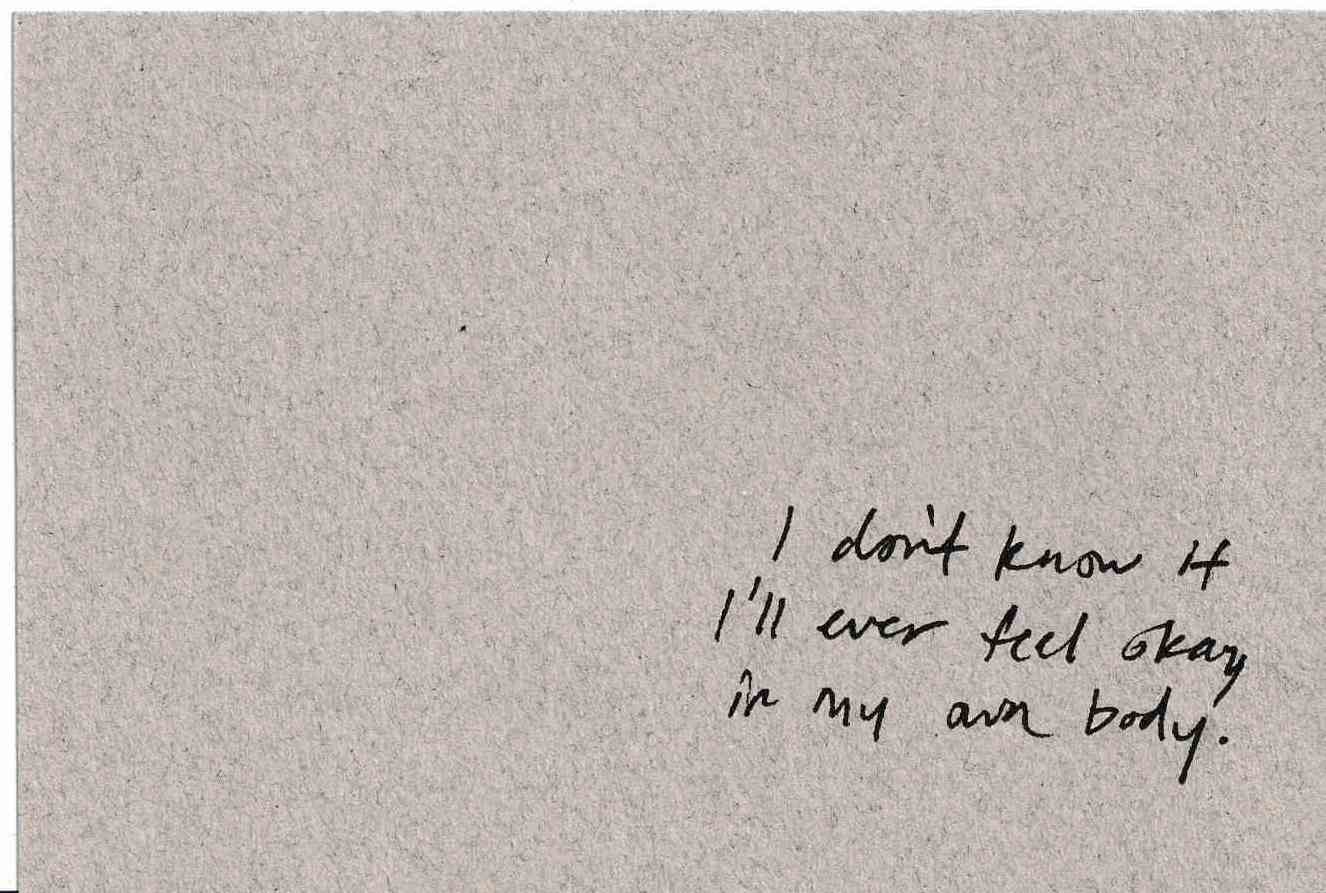 I don't know if
I'll ever feel okay
in my own body.